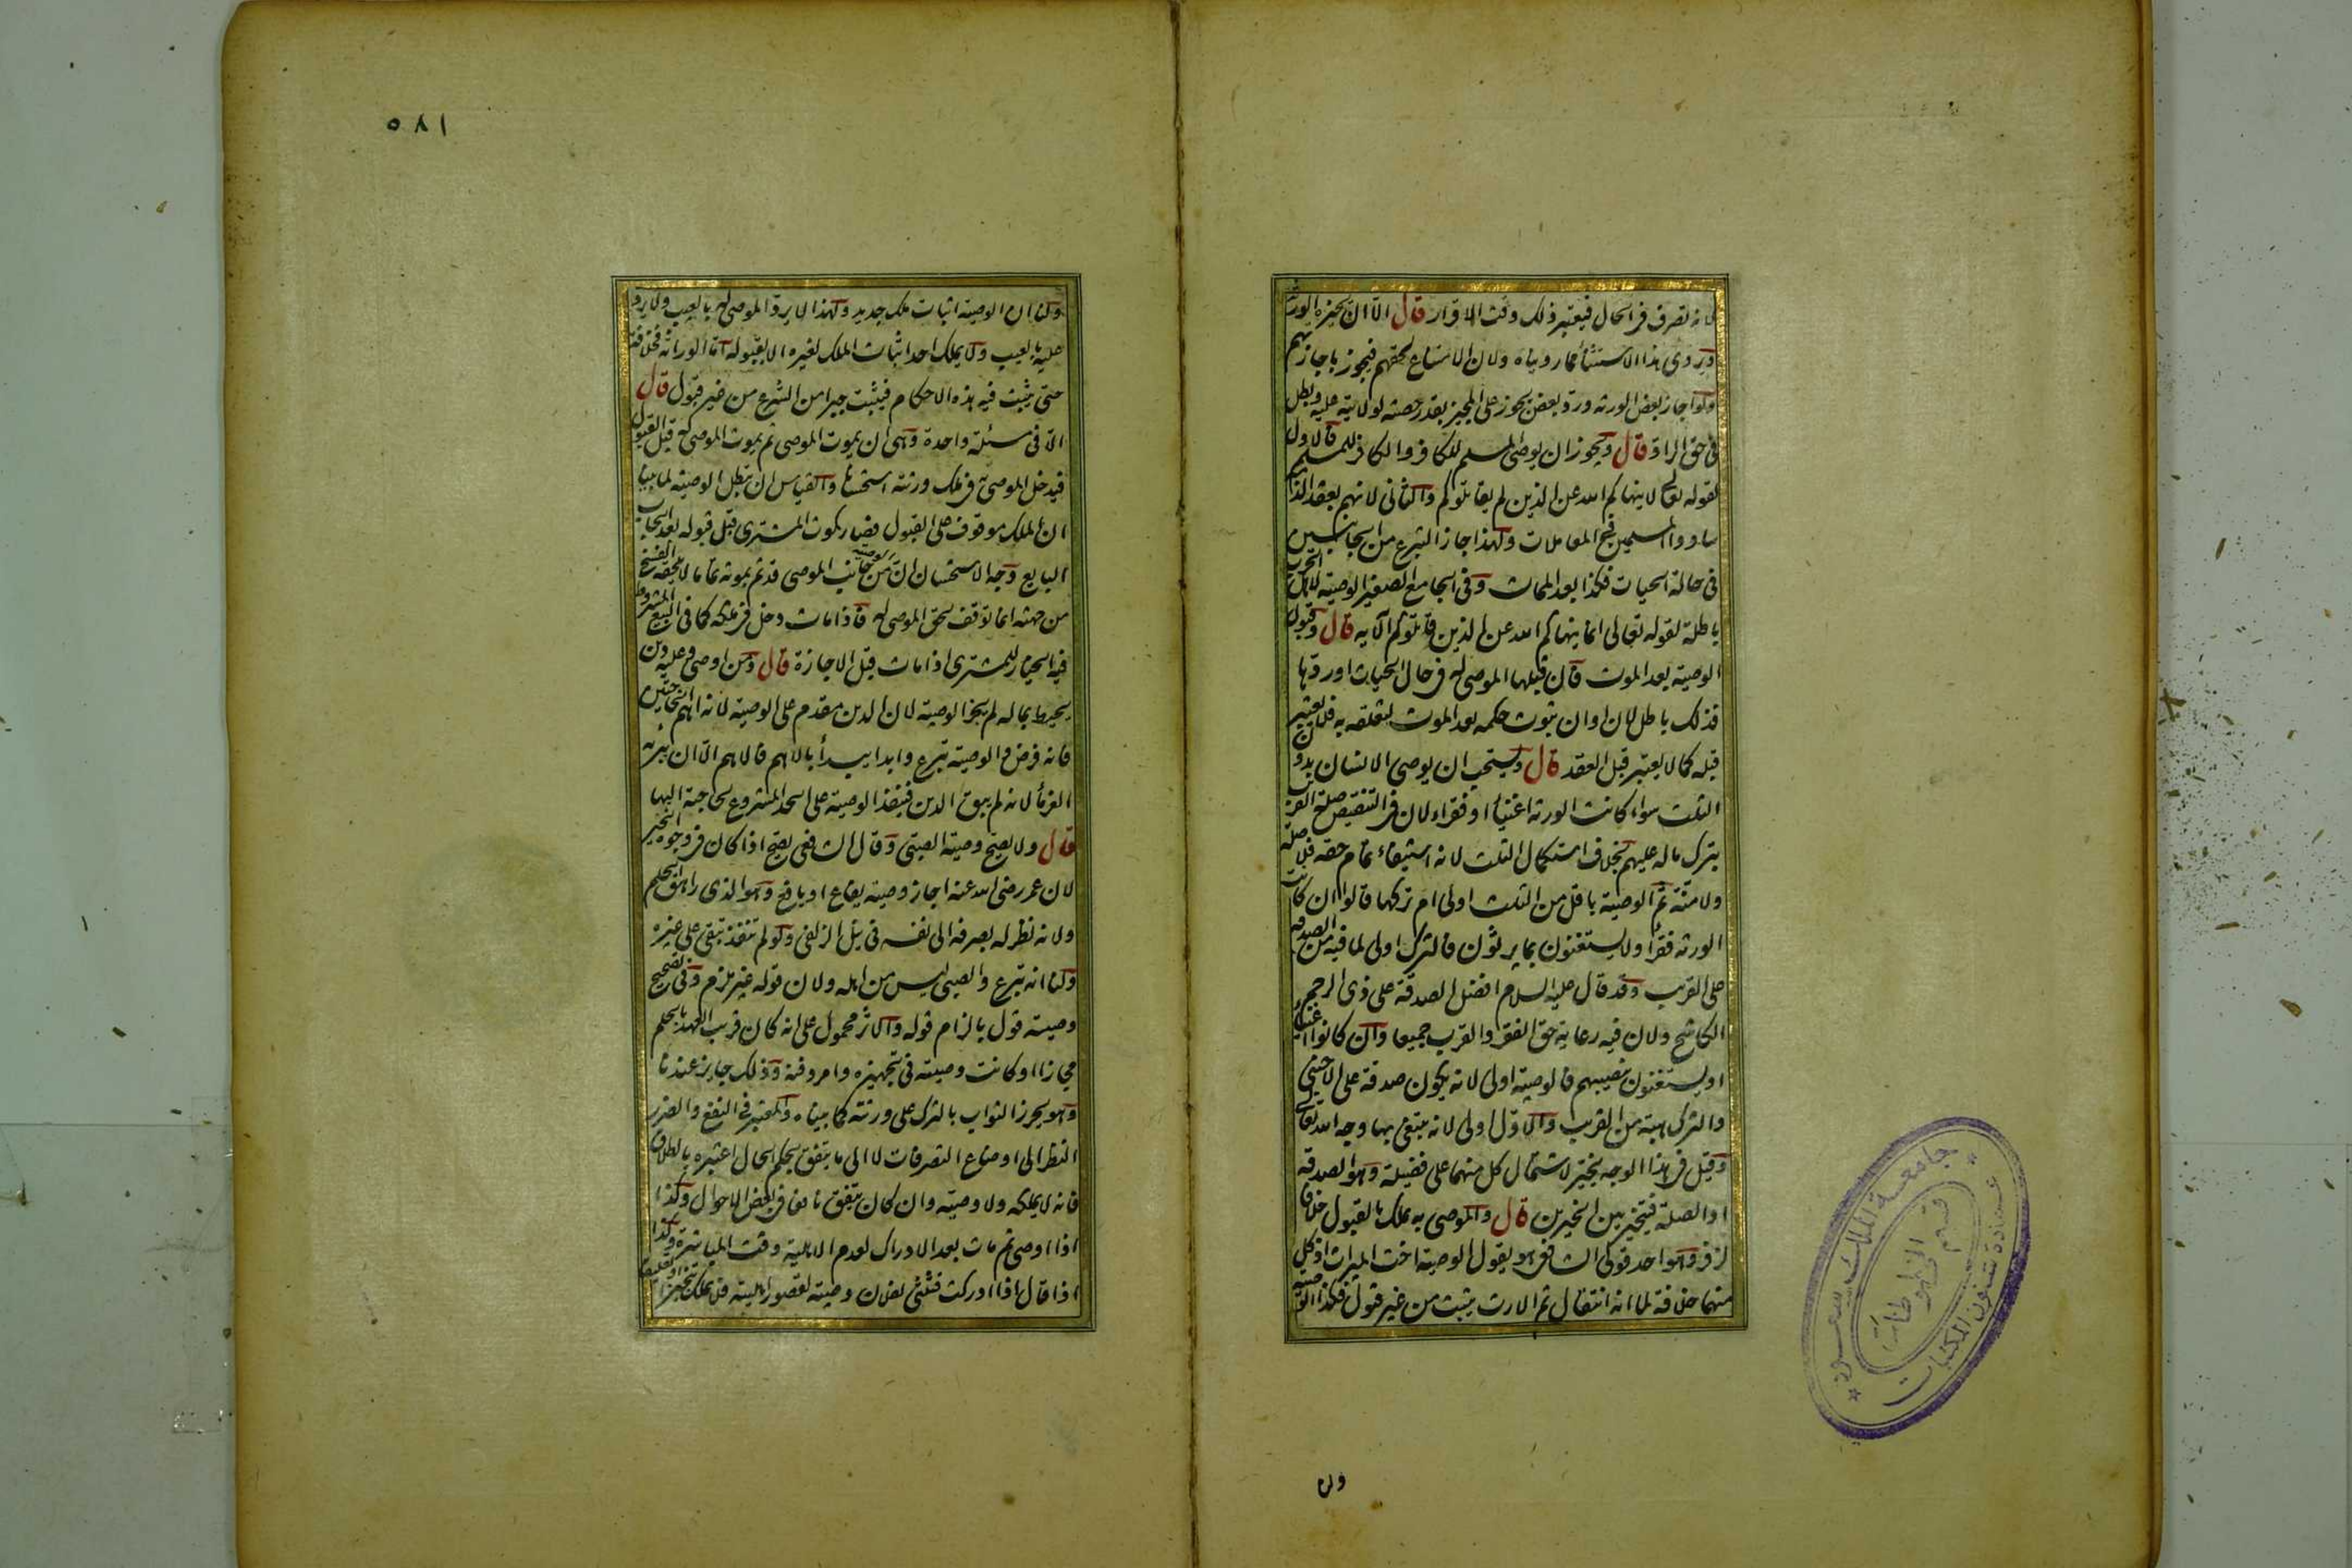 لانه تصرف فى الحال فيعتبر ذلك وقت الاقرار قال الا ان يجيزه الورثة
ويروى هذا الاستثنأ فيما رويناه ولان الامتناع لحقهم فيجوز باجازتهم
ولو اجاز بعض الورثه ورد بعض يجوز على المجيز بقدر حصته لولايته عليه وبطل
فى حق الراد قال ويجوز ان يوصى المسلم للكافر والكافر للمسلم فالاول
لقوله تعالى لا ينهاكم الله عن الذين لم يقاتلوكم والثانى لانهم بعقد الذمة
ساووا المسلمين فى المعاملات ولهذا جاز التبرع من الجانبين
فى حالة الحيات فكذا بعد الممات وفى الجامع الصغير الوصية لاهل الحرب
باطلة لقوله تعالى انما ينهاكم الله عن الذين قاتلوكم الآيه قال وقبول
الوصية بعد الموت فان قبلها الموصى له فى حال الحيات او ردها
فذلك باطل لان اوان ثبوت حكمه بعد الموت لتعلقه به فلا يعتبر
قبله كما لا يعتبر قبل العقد قال ويستحب ان يوصى الانسان بدون
الثلث سواء كانت الورثه اغنيأ او فقراء لان فى التنقيص صلة القريب
بترك ماله عليهم بخلاف استكمال الثلث لانه استيفاء تمام حقه فلا صلة
ولا منة ثم الوصية باقل من الثلث اولى ام تركها قالوا ان كانت
الورثه فقرأ ولا يستغنون بما يرثون فالترك اولى لما فيه من الصدقه
على القريب وقد قال عليه السلام افضل الصدقة على ذى الرحم
الكاشح ولان فيه رعاية حق الفقر والقرب جميعا وان كانوا اغنيأ
او يستغنون بنصيبهم فالوصية اولى لانه يكون صدقة على الاجنبى
والترك هبة من القريب والاول اولى لانه يبتغى بها وجه الله تعالى
وقيل فى هذا الوجه يخير لاشتمال كل منهما على فضيلة وهو الصدقة
او الصلة فيتخير بين الخيرين قال والموصى به يملك بالقبول خلافا
لزفر وهو احد قولى الشافعى هو يقول الوصية اخت الميراث اذ كل
منهما خلافة لما انه انتقال ثم الارث يثبت من غير قبول فكذا الوصية
ولنا
٥٨١
ولنا ان الوصية اثبات ملك جديد ولهذا لا يرد الموصى له بالعيب ولا يرد
عليه بالعيب ولا يملك احد اثبات الملك لغيره الا بقبوله اما الوراثة فخلافة
حتى يثبت فيه هذه الاحكام فيثبت جبرا من الشرع من غير قبول قال
الا فى مسئلة واحدة وهى ان يموت الموصى ثم يموت الموصى له قبل القبول
فيدخل الموصى به فى ملك ورثته استحسانا والقياس ان تبطل الوصية لما بينا
ان الملك موقوف على القبول فصار كموت المشترى قبل قبوله بعد ايجاب
البايع وجه الاستحسان ان الوصية من جانب الموصى قد تم بموته تماما لا يلحقه الفسخ
من جهته انما توقف لحق الموصى له فاذا مات دخل فى ملكه كما فى البيع المشروط
فيه الخيار للمشترى اذا مات قبل الاجازة قال ومن اوصى وعليه دين
يحيط بماله لم يجز الوصية لان الدين مقدم على الوصية لانه اهم الحاجتين
فانه فرض والوصية تبرع وابدا يبدأ بالاهم فالاهم الا ان يبرئه
الغرمأ لانه لم يبق الدين فينفذ الوصية على الحد المشروع لحاجته اليها
قال ولا يصح وصية الصبى وقال الشافعى يصح اذا كان فى وجوه الخير
لان عمر رضى الله عنه اجاز وصية يفاع او يافع وهو الذى راهق الحلم
ولانه نظر له بصرفه الى نفسه فى نيل الزلفى ولو لم تنفذ تبقى على غيره
ولنا انه تبرع والصبى ليس من اهله ولان قوله غير ملزم وفى تصحيح
وصيته قول بالزام قوله والاثر محمول على انه كان قريب العهد بالحلم
مجازا او كانت وصيته فى تجهيزه وامر دفنه وذلك جايز عندنا
وهو يحرز الثواب بالترك على ورثته كما بيناه والمعتبر فى النفع والضرر
النظر الى اوضاع التصرفات لا الى ما يتفق بحكم الحال اعتبره بالطلاق
فانه لا يملكه ولا وصيته وان كان يتفق نافعا فى بعض الاحوال وكذا
اذا اوصى ثم مات بعد الادراك لعدم الاهلية وقت المباشرة وكذا
اذا قال اذا ادركت فثلثى لفلان وصية لقصور اهليته فلا يملك تنجيزا وتعليقا
جامعة الملك سعود
عمادة شئون المكتبات
قسم المخطوطات